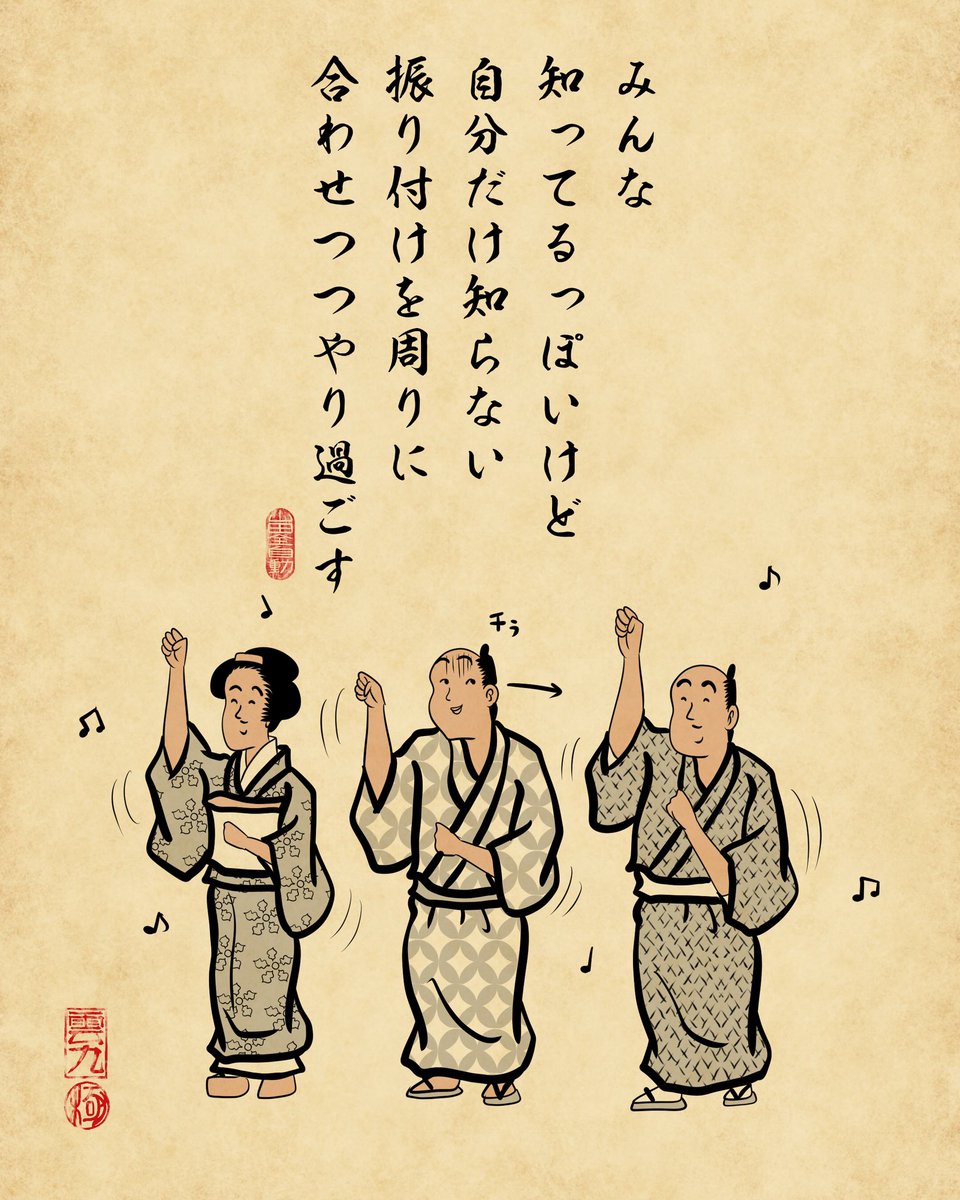 みんな
知ってるっぽいけど
自分だけ知らない
振り付けを周りに
合わせつつやり過ごす
チラ